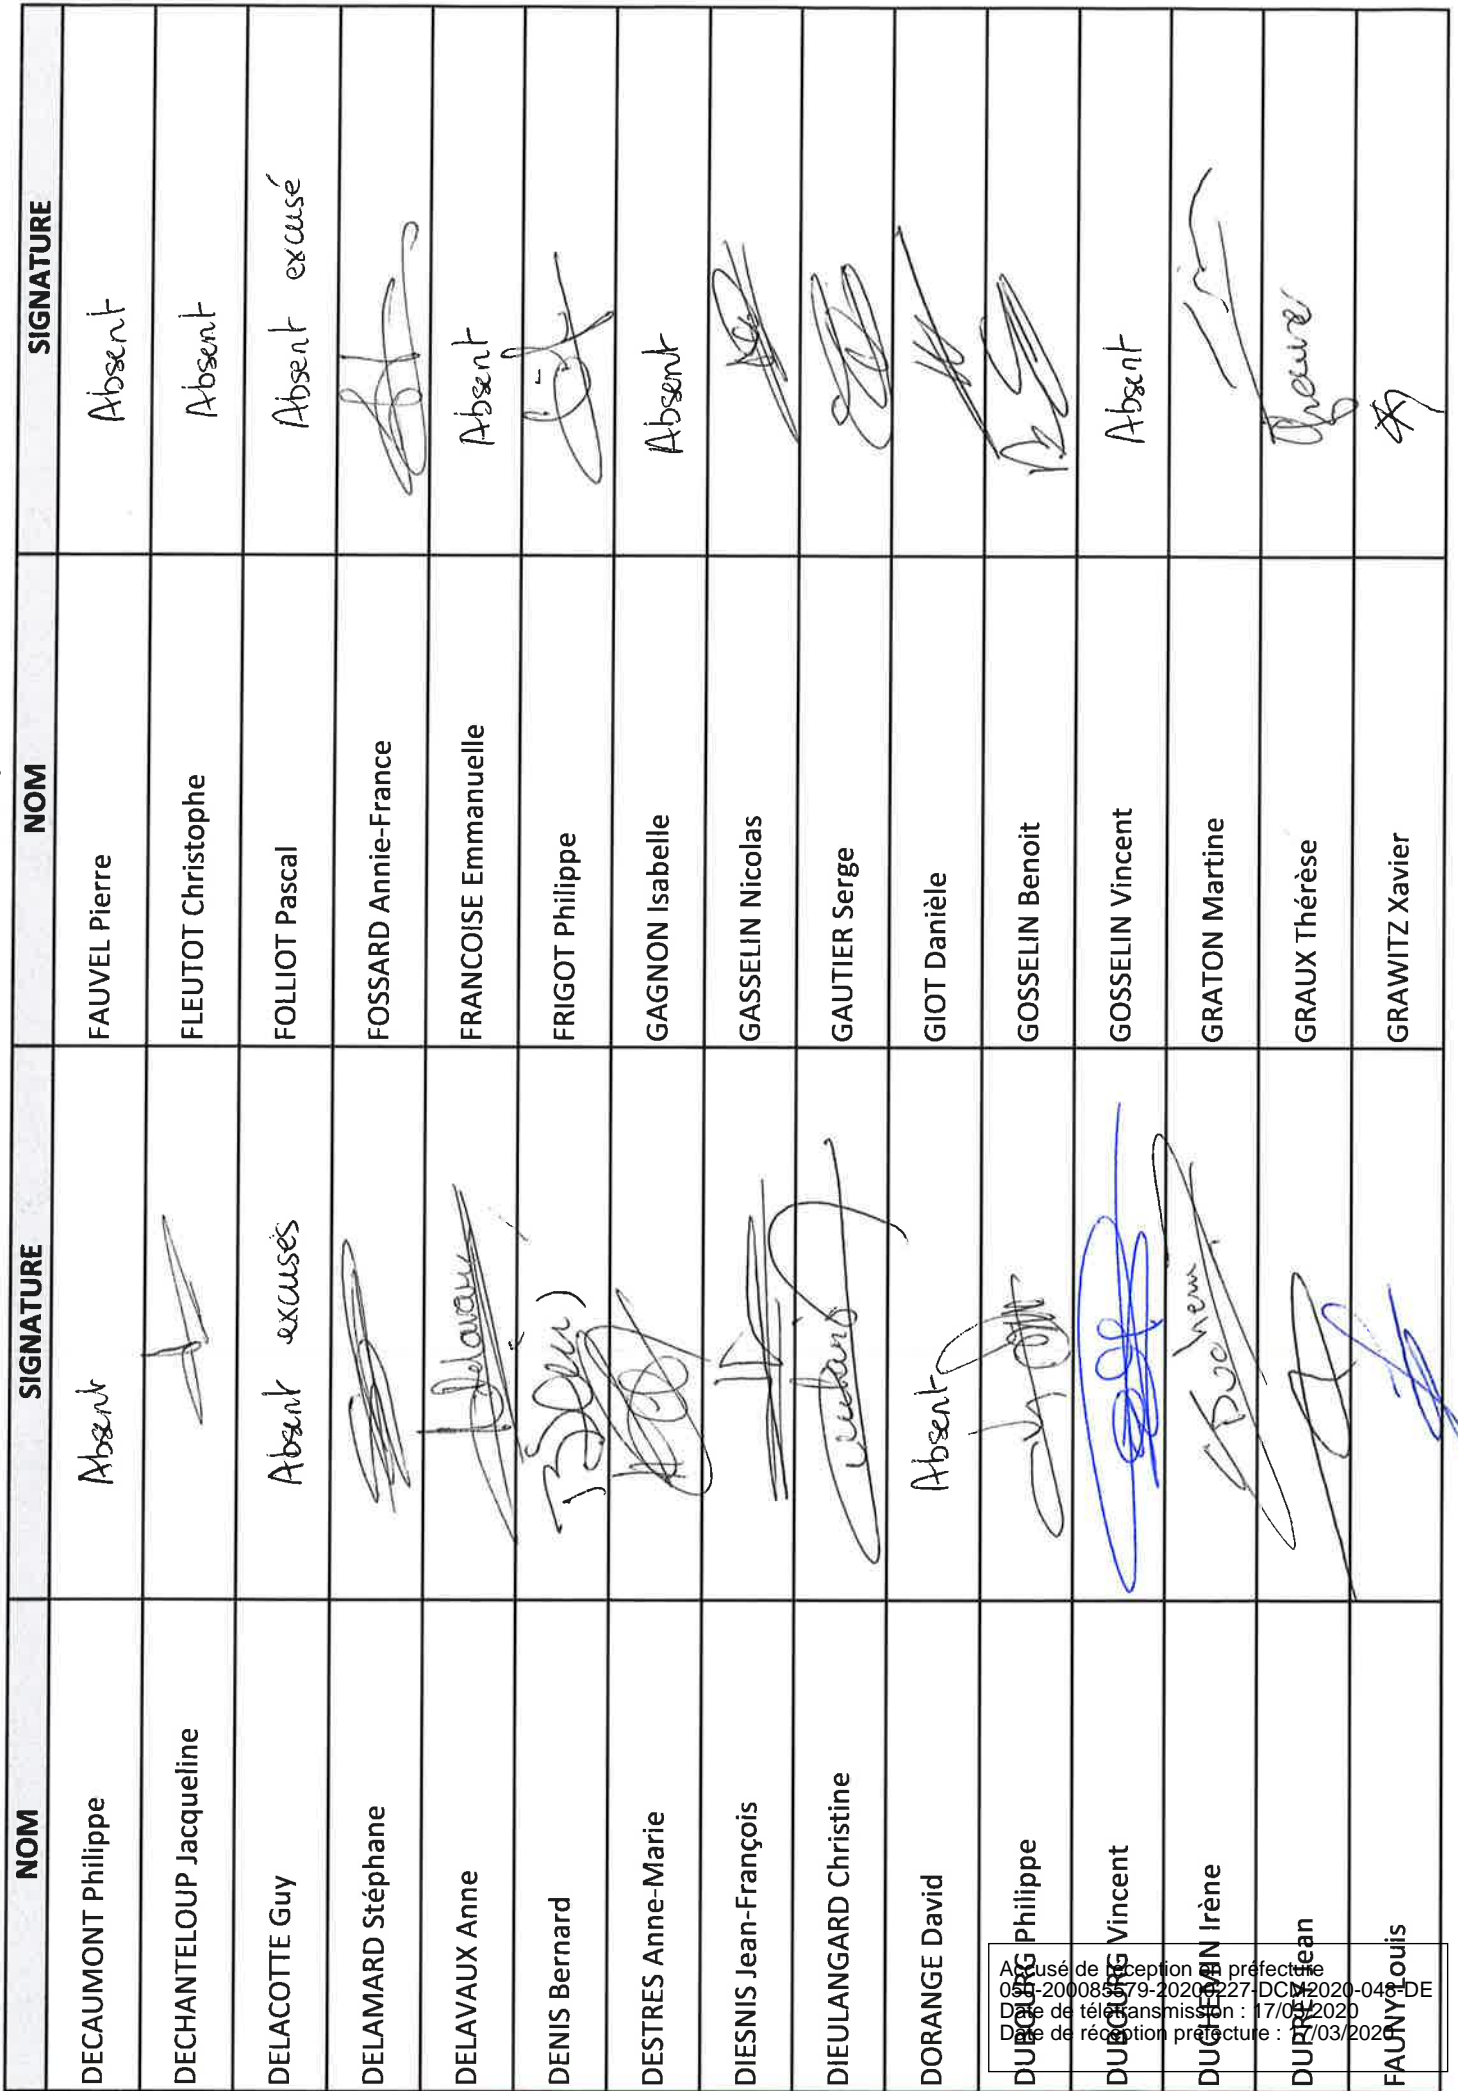 NOM SIGNATURE NOM SIGNATURE
DECAUMONT Philippe Absent FAUVEL Pierre Absent
DECHANTELOUP Jacqueline FLEUTOT Christophe Absent
DELACOTTE Guy Absent excusés FOLLIOT Pascal Absent excusé
DELAMARD Stéphane FOSSARD Annie-France
DELAVAUX Anne Delavaux FRANCOISE Emmanuelle Absent
DENIS Bernard FRIGOT Philippe
DESTRES Anne-Marie GAGNON Isabelle Absent
DIESNIS Jean-François GASSELIN Nicolas
DIEULANGARD Christine GAUTIER Serge
DORANGE David Absent GIOT Danièle
DUBOURG Philippe GOSSELIN Benoit
DUBOURG Vincent GOSSELIN Vincent Absent
DUCHEMIN Irène GRATON Martine
DUPREY Jean GRAUX Thérèse
FAUNY Louis GRAWITZ Xavier
Accusé de réception en préfecture
050-200085579-20200227-DCM-2020-048-DE
Date de télétransmission : 17/03/2020
Date de réception préfecture : 17/03/2020